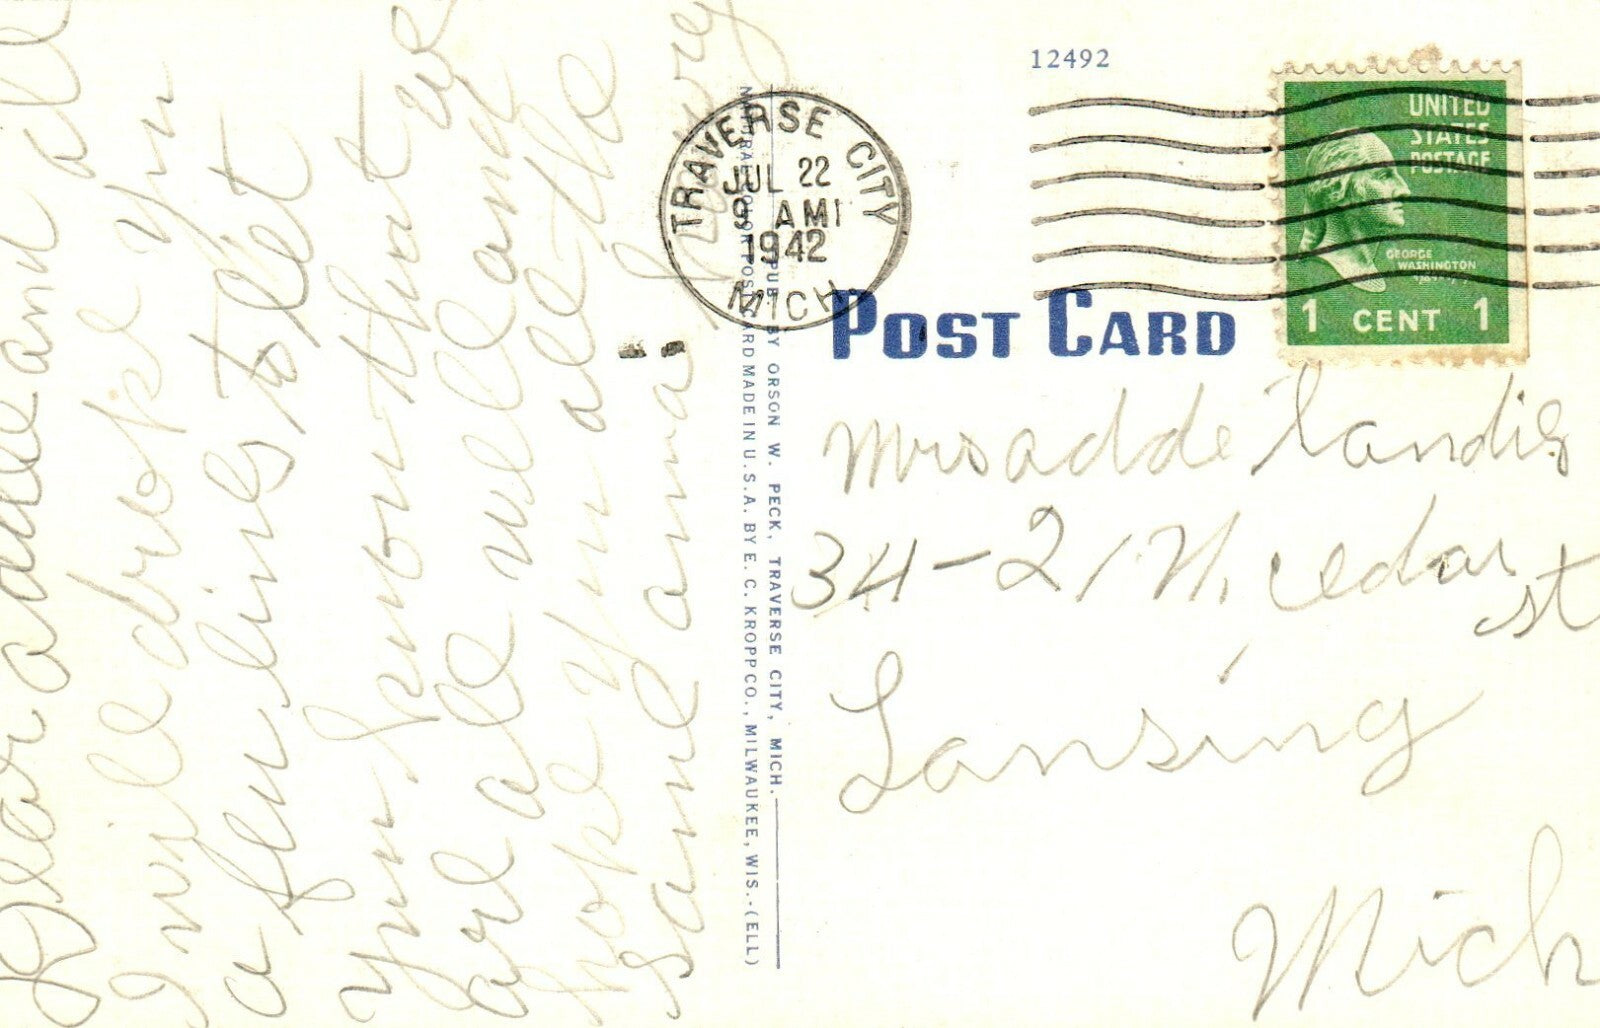 12492
UNITED
STATES
POSTAGE
GEORGE
WASHINGTON
1 CENT 1
TRAVERSE CITY
JUL 22
9 AM
1942
MICH
POST CARD
PUB. BY ORSON W. PECK, TRAVERSE CITY, MICH.
NATURAL COLOR POST CARD MADE IN U.S.A. BY E. C. KROPP CO., MILWAUKEE, WIS.-(ELL)
Dear addee and all
I will drope you
a few lines to let
you know that we
are all well and
hope you all the
same anna
Lowry
Mrs adde Landis
34-21 N. cedar
st
Lansing
Mich